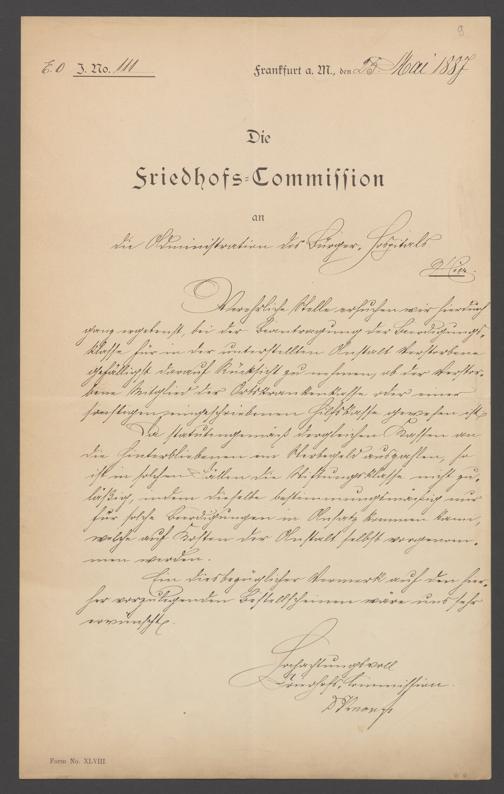 9
E.O J. No. 111
Frankfurt a. M., den 25. Mai 1887
Die
Friedhofs-Commission
an
die Administration des Bürger-Hospitals
Hier.
Verehrliche Stelle ersuchen wir hierdurch
ganz ergebenst, bei der Beantragung der Beerdigungs-
klasse für in der unterstellten Anstalt Verstorbene
gefälligst darauf Rücksicht zu nehmen, ob der Verstor-
bene Mitglied der Ortskrankenkasse oder einer
sonstigen eingeschriebenen Hilfskasse gewesen ist.
Da statutengemäß dergleichen Kassen an
die Hinterbliebenen ein Sterbegeld auszahlen, so
ist in solchen Fällen die Stiftungsklasse nicht zu-
läßig, indem dieselbe bestimmungsmäßig nur
für solche Beerdigungen in Ansatz kommen kann,
welche auf Kosten der Anstalt selbst vorgenom-
men werden.
Ein diesbezüglicher Vermerk auf den hier-
her vorzulegenden Bestellscheinen wäre uns sehr
erwünscht.
Hochachtungsvoll
Friedhofs-Commission.
Form No. XLVIII.